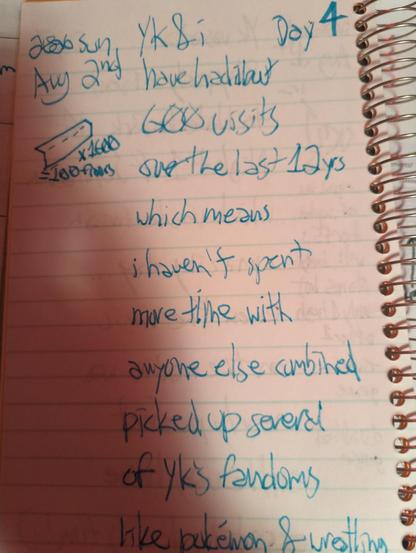 Sun Yk & i Day 4
Aug 2nd have had about
600 visits
x1600
over the last 12 yrs
which means
i haven't spent
more time with
anyone else combined
picked up several
of Yk's fandoms
like pokémon & wrestling